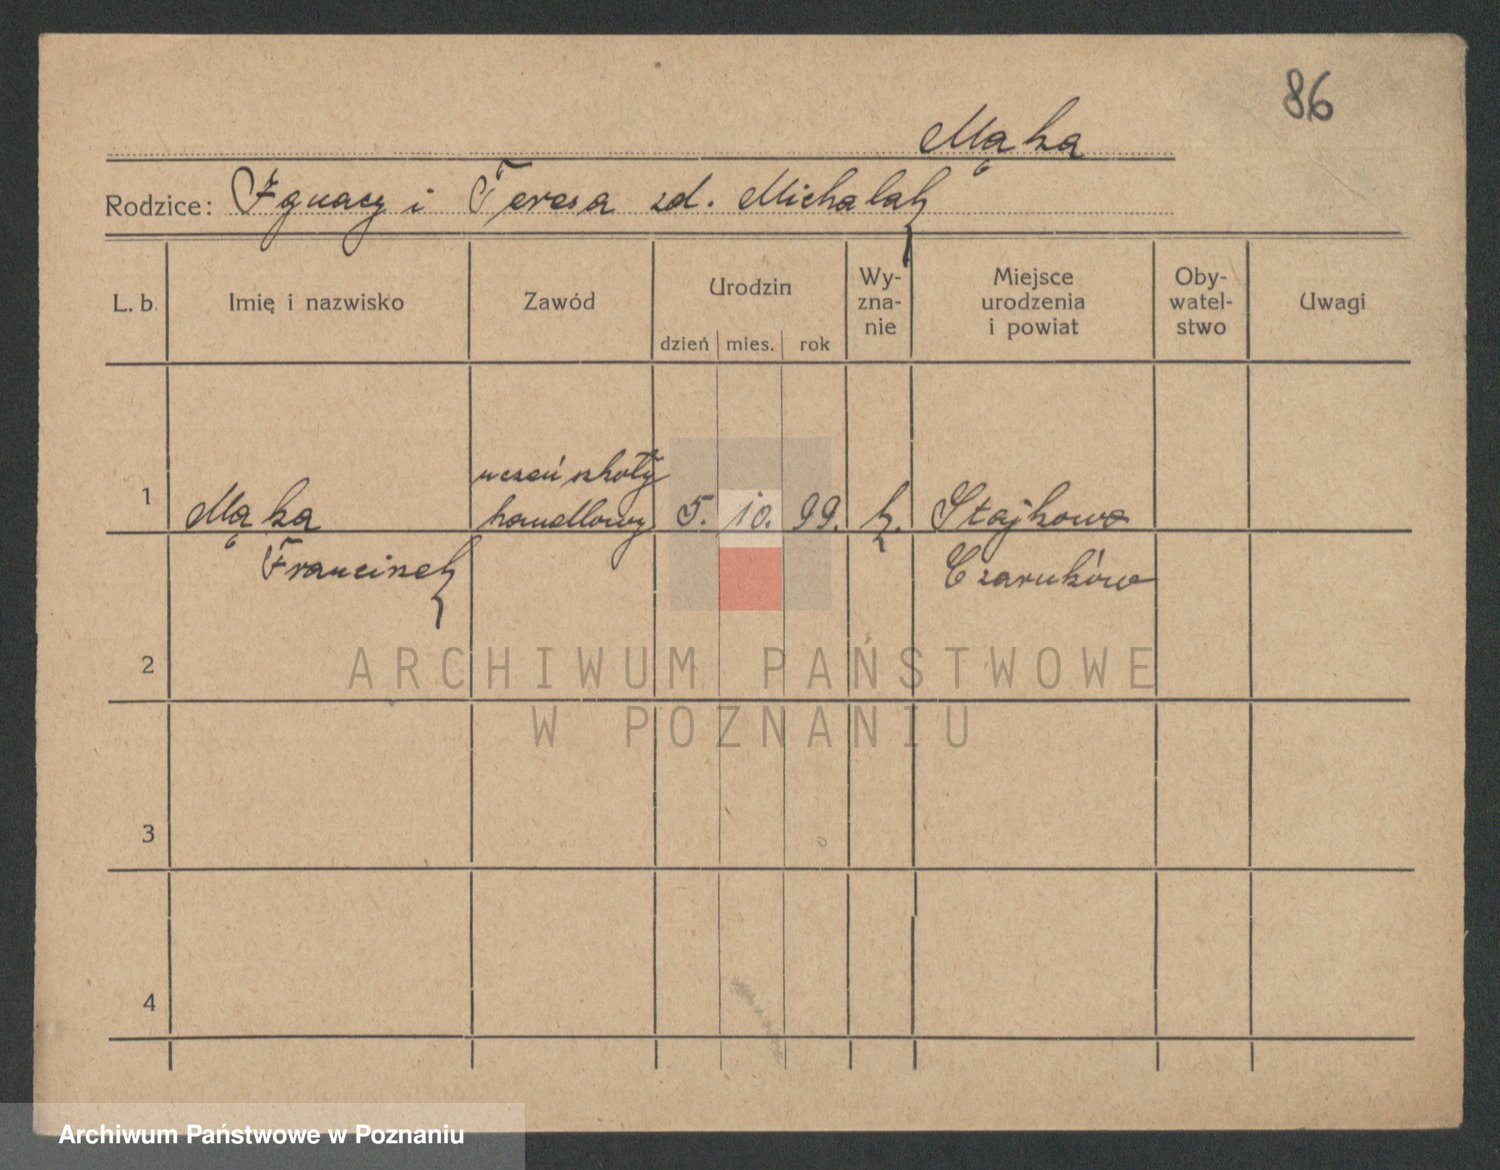 86
Mąka
Rodzice: Ignacy i Teresa zd. Michalak
L. b. Imię i nazwisko Zawód Urodzin Wy- Miejsce Oby- Uwagi
zna- urodzenia watel-
nie i powiat stwo
dzień mies. rok
uczeń szkoły
1 Mąka handlowej 5. 10. 99. k. Stajkowo
Franciszek Czarnków
2
ARCHIWUM PAŃSTWOWE
W POZNANIU
3
4
Archiwum Państwowe w Poznaniu